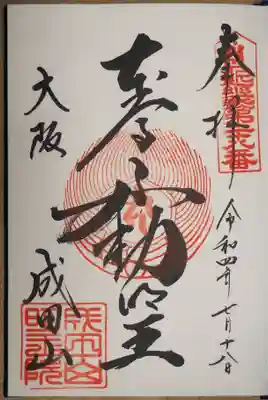 奉拝
令和四年七月十八日
本尊不動明王
大阪
成田山
成田山
明王院